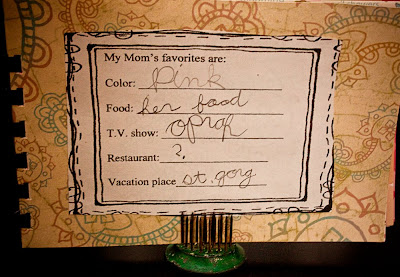 My Mom's favorites are:
Color: pink
Food: her food
T.V. show: oproh
Restaurant: ?.
Vacation place st. gorg